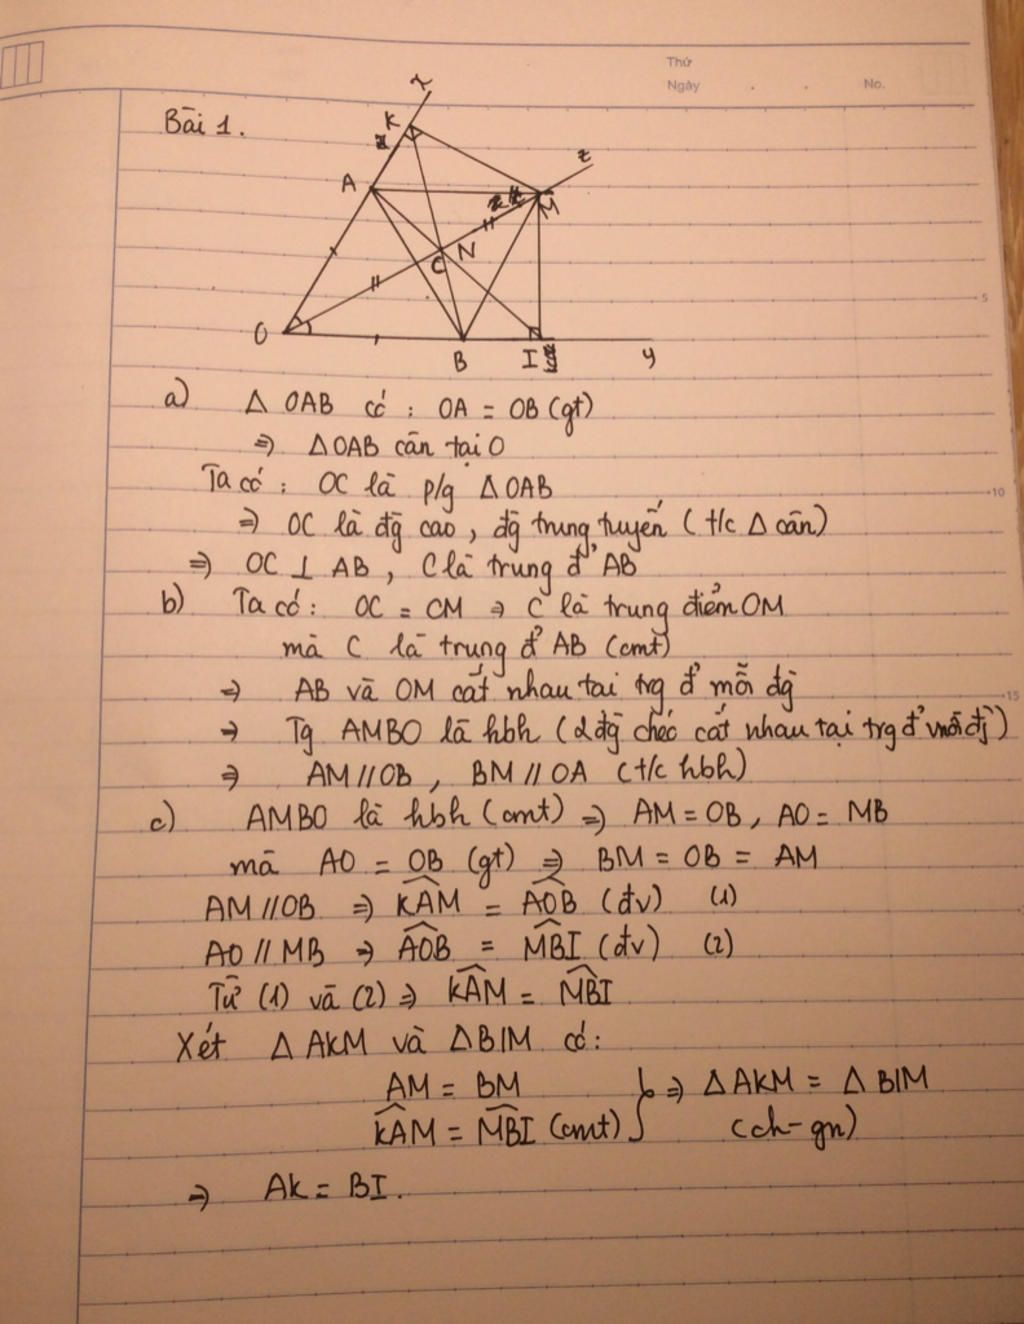 Thứ
Ngày . . No.
Bài 1.
x
K
z
A
M
N
C
O
B
I
y
5
a) Δ OAB có : OA = OB (gt)
⇒ ΔOAB cân tại O
Ta có : OC là p/g ΔOAB
10
⇒ OC là đg cao, đg trung tuyến (t/c Δ cân)
⇒ OC ⊥ AB, C là trung đ' AB
b) Ta có : OC = CM ⇒ C là trung điểm OM
mà C là trung đ' AB (cmt)
⇒ AB và OM cắt nhau tai trg đ' mỗi đg
15
⇒ Tg AMBO là hbh (2 đg chéo cắt nhau tại trg đ' mỗi đg)
⇒ AM // OB, BM // OA (t/c hbh)
c) AMBO là hbh (cmt) ⇒ AM = OB, AO = MB
mà AO = OB (gt) ⇒ BM = OB = AM
AM // OB ⇒ K̂AM = ÂOB (đv) (1)
AO // MB ⇒ ÂOB = M̂BI (đv) (2)
Từ (1) và (2) ⇒ K̂AM = M̂BI
Xét Δ AKM và ΔBIM có:
AM = BM } ⇒ Δ AKM = Δ BIM
K̂AM = M̂BI (cmt) (ch - gn)
⇒ AK = BI.